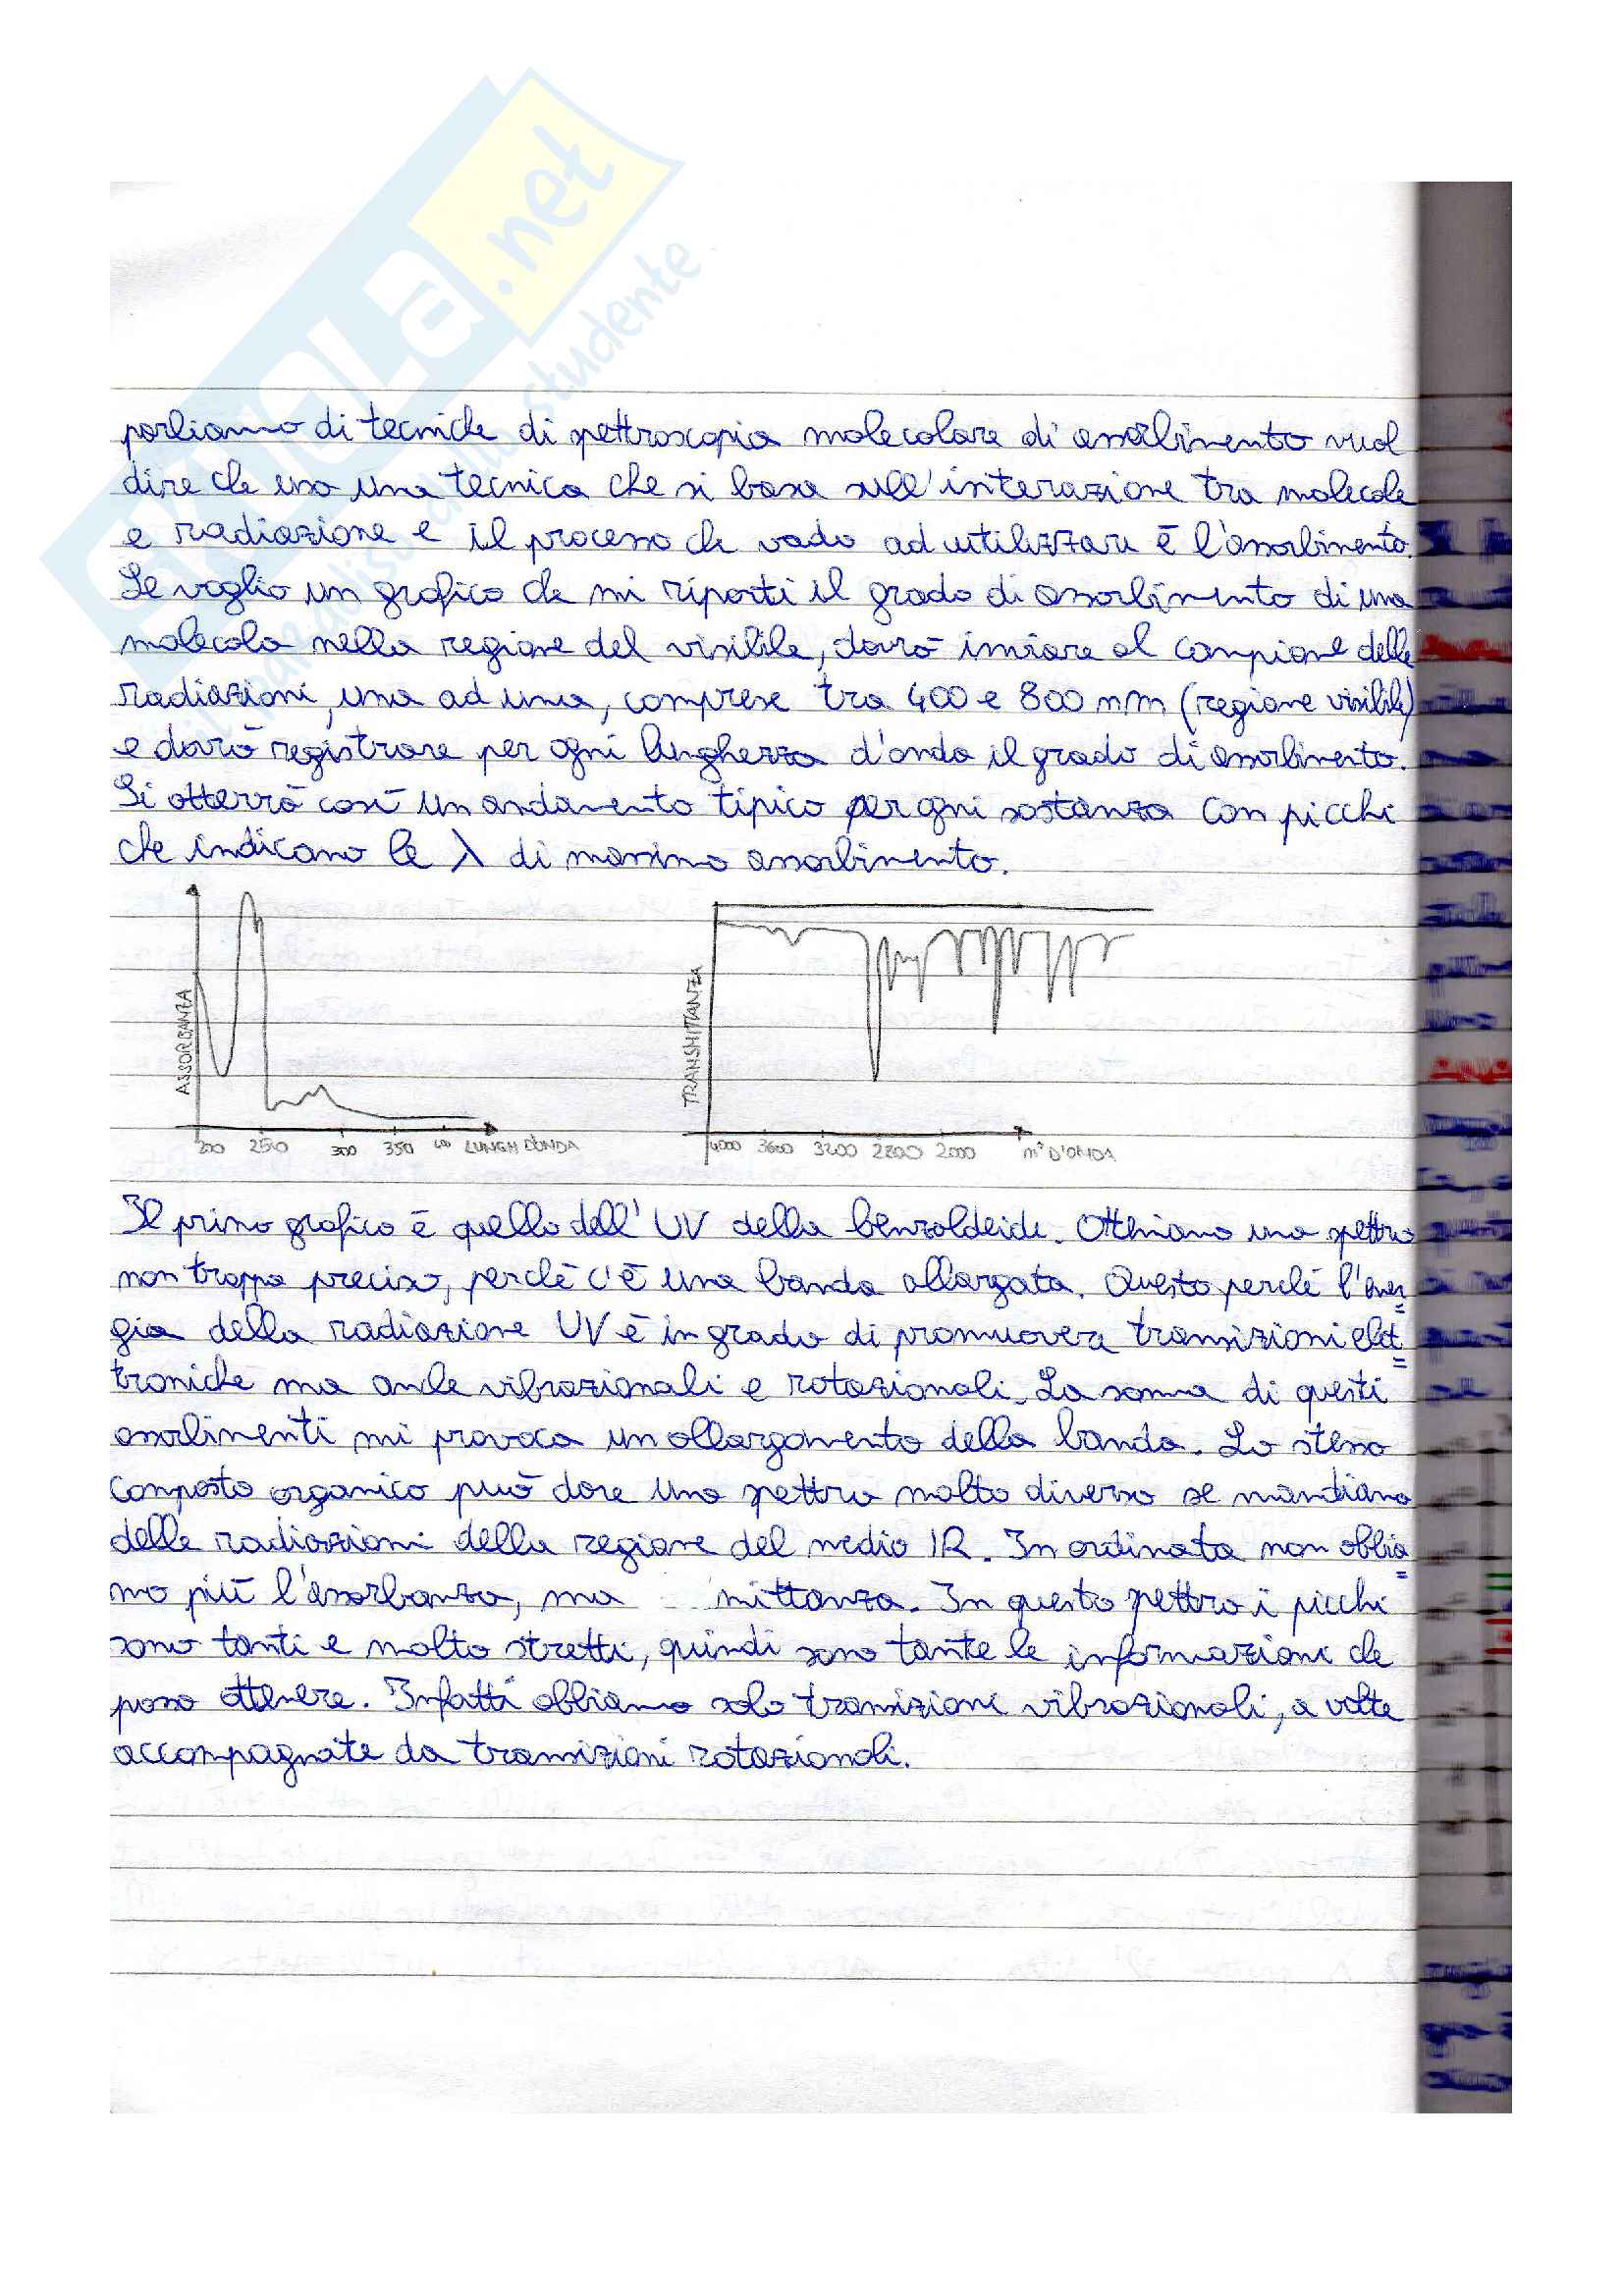 SKUOLA.net
parliamo di tecniche di spettroscopia molecolare di assorbimento vuol
dire che uso una tecnica che si basa sull'interazione tra molecole
e radiazione e il processo che vado ad utilizzare è l'assorbimento.
Se voglio un grafico che mi riporti il grado di assorbimento di una
molecola nella regione del visibile, dovrò inviare al campione delle
radiazioni, una ad una, comprese tra 400 e 800 nm (regione visibile)
e dovrò registrare per ogni lunghezza d'onda il grado di assorbimento.
Si otterrà così un andamento tipico per ogni sostanza con picchi
che indicano le λ di massimo assorbimento.
ASSORBANZA
200 250 300 350 400 LUNGH D'ONDA
TRANSMITTANZA
4000 3600 3200 2800 2000 n° D'ONDA
Il primo grafico è quello dell'UV della benzaldeide. Otteniamo uno spettro
non troppo preciso, perchè c'è una banda allargata. Questo perchè l'ener=
gia della radiazione UV è in grado di promuovere transizioni elet=
troniche ma anche vibrazionali e rotazionali. La somma di questi
assorbimenti mi provoca un allargamento della banda. Lo stesso
composto organico può dare uno spettro molto diverso se mandiamo
delle radiazioni della regione del medio IR. In ordinata non abbia=
mo più l'assorbanza, ma mittanza. In questo spettro i picchi
sono tanti e molto stretti, quindi sono tante le informazioni che
posso ottenere. Infatti abbiamo solo transizioni vibrazionali, a volte
accompagnate da transizioni rotazionali.